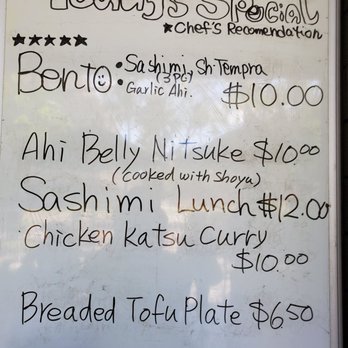 Today's Special
★Chef's Recomendation
★★★★★
Bento • Sashimi, Sh Tempra
(3PC)
• Garlic Ahi.
$10.00
Ahi Belly Nitsuke $10.00
(Cooked with Shoyu)
Sashimi Lunch $12.00
Chicken Katsu Curry
$10.00
Breaded Tofu Plate $6.50